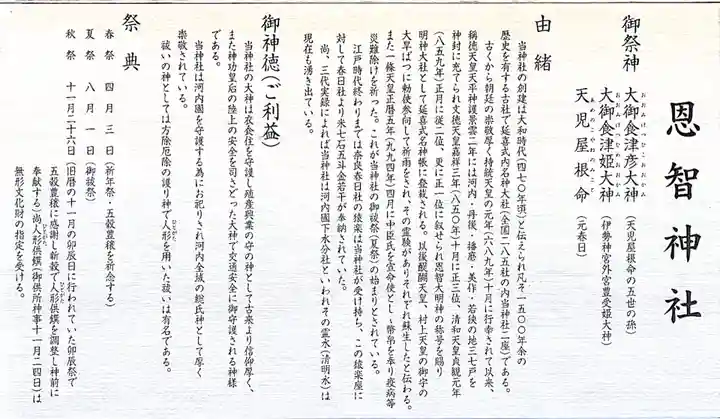 恩智神社
御祭神
大御食津彦大神（天児屋根命の五世の孫）
大御食津姫大神（伊勢神宮外宮豊受姫大神）
天児屋根命（元春日）
由緒
当神社の創建は大和時代（四七〇年頃）と伝えられ凡そ一五〇〇年余の
歴史を有する古社で延喜式内名神大社（全国二八五社の内当神社二座）である。
古くから朝廷の崇敬厚く持統天皇の元年（六八九年）十月に行幸されて以来、
称徳天皇天平神護景雲二年には河内・丹後・播磨・美作・若狭の地三七戸を
神封に充てられ文徳天皇嘉祥三年（八五〇年）十月に正三位、清和天皇貞観元年
（八五九年）正月に従二位、更に正一位に叙せられ恩智大明神の称号を賜り
明神大社として延喜式名神帳に登載される。以後醍醐天皇、村上天皇の御宇の
大旱ばつに勅使参向して祈雨をされ、その霊験がありそれぞれ蘇生したと伝わる。
また一條天皇正暦五年（九九四年）四月に中臣氏を宣命使とし、幣帛を奉り疫病等
災難除けを祈った。これが当神社の御祓祭（夏祭）の始まりとされている。
江戸時代終わりまでは奈良春日社の猿楽は当神社が受け持ち、この猿楽座に
対して春日社より米七石五斗金若干が奉納されていた。
尚、三代実録によれば当神社は河内國下水分社といわれその霊水（清明水）は
現在も湧き出ている。
御神徳（ご利益）
当神社の大神は衣食住を守護し殖産興業の守の神として古来より信仰厚く、
また神功皇后の陸上の安全を司さどった大神で交通安全に御守護される神様
である。
当神社は河内國を守護する為にお祀りされ河内全域の総氏神として厚く
崇敬されている。
祓いの神としては方除厄除の護り神で人形を用いた祓いは有名である。
祭典
春祭　四月三日（祈年祭・五穀豊穣を祈念する）
夏祭　八月一日（御祓祭）
秋祭　十一月二十六日（旧暦の十一月の卯辰日に行われていた卯辰祭で
五穀豊穣に感謝し新穀で人形供饌を調整し神前に
奉献する）尚人形供饌（御供所神事十一月二四日）は
無形文化財の指定を受ける。